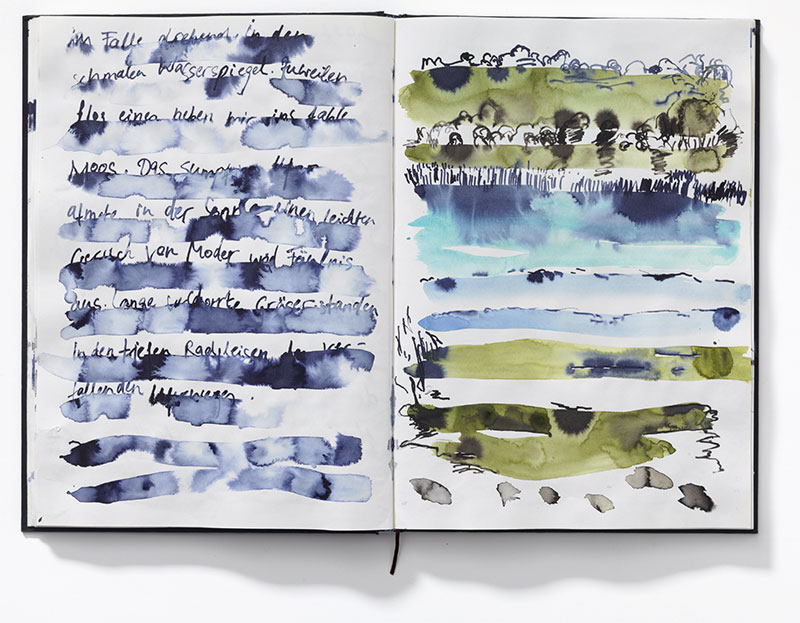 im Falle drehend. in den
schmalen Wasserspiegel. Zuweilen
flog einen neben mir ins kahle
Moos. Das
atmete in der Sonne einen leichten
Geruch von Moder und Fäulnis
aus. Lange verdorrte Gräser standen
in den tiefen Radgleisen der ver-
fallenden